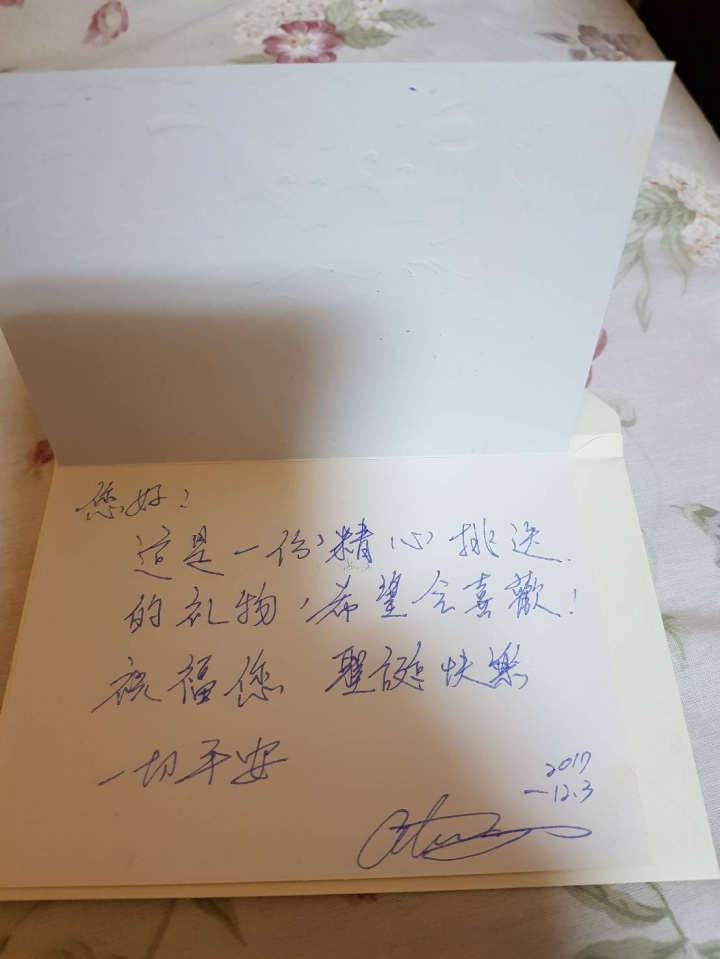 您好！
這是一份精心挑送
的礼物，希望会喜歡！
祝福您 聖誕快樂
一切平安
2017
-12.3